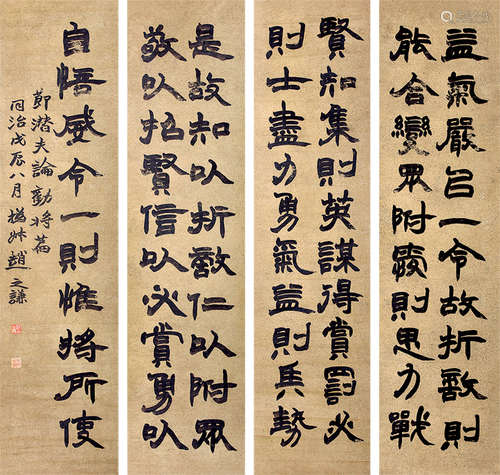 益氣嚴㠯一令故折敵則
能合變眾附愛則思力戰
賢知集則英謀得賞罰必
則士盡力勇氣益則兵勢
是故知以折敵仁以附眾
敬以招賢信以必賞勇以
自倍威令一則惟將所使
節潛夫論勸將篇
同治戊辰八月撝叔趙之謙